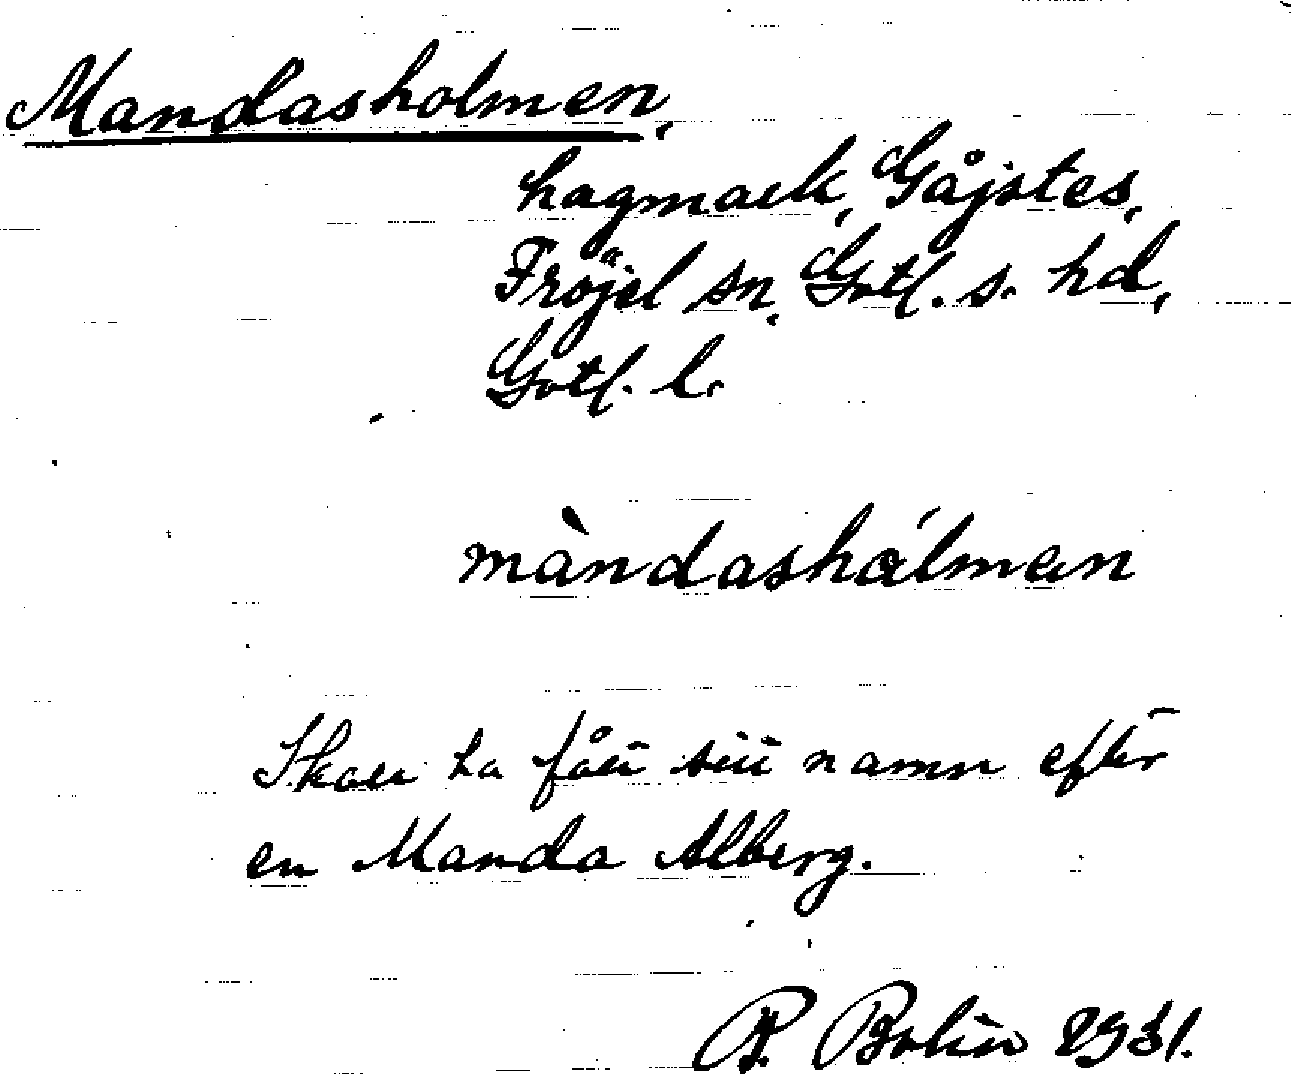 Mandasholmen,
hagmark, Gåjstes,
Fröjel sn, Gotl. s. hd,
Gotl. l.
màndashålmæn
Skall ha fått sitt namn efter
en Manda Alberg.
Bolin 1931.